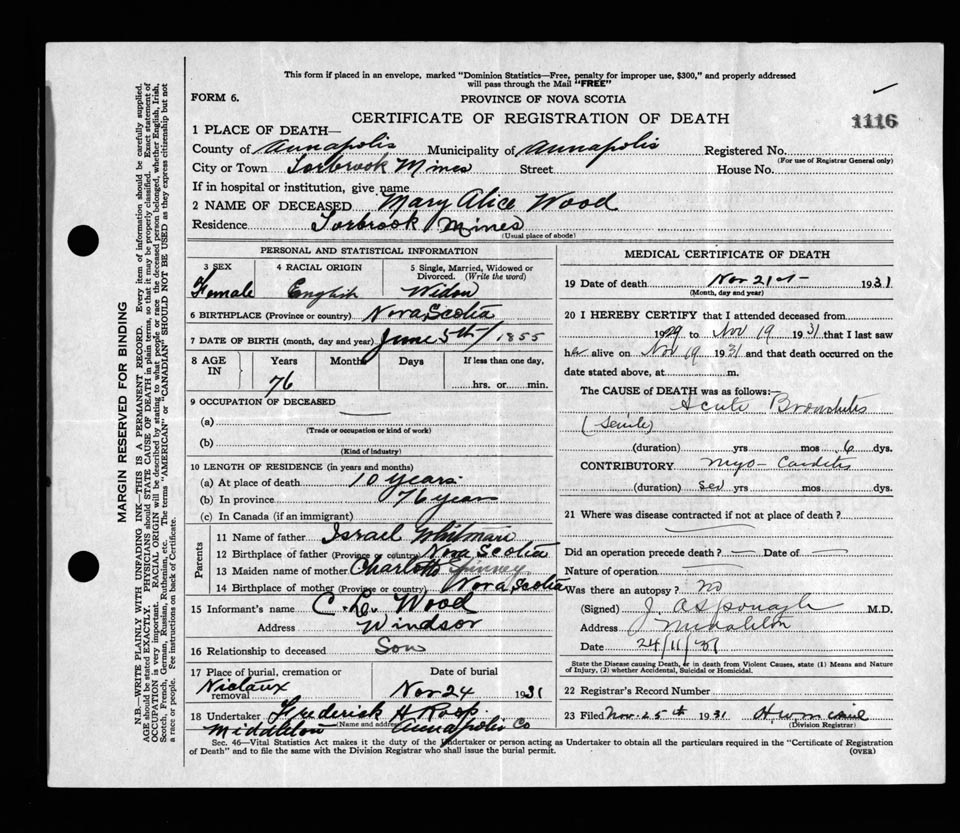 This form if placed in an envelope, marked "Dominion Statistics—Free, penalty for improper use, $300," and properly addressed
will pass through the Mail "FREE"
FORM 6.
PROVINCE OF NOVA SCOTIA
CERTIFICATE OF REGISTRATION OF DEATH
1116
1 PLACE OF DEATH—
County of Annapolis Municipality of Annapolis Registered No.
(For use of Registrar General only)
City or Town Torbrook Mines Street House No.
If in hospital or institution, give name
2 NAME OF DECEASED Mary Alice Wood
Residence Torbrook Mines
(Usual place of abode)
PERSONAL AND STATISTICAL INFORMATION
3 SEX 4 RACIAL ORIGIN 5 Single, Married, Widowed or
Divorced. (Write the word)
Female English Widow
6 BIRTHPLACE (Province or country) Nova Scotia
7 DATE OF BIRTH (month, day and year) June 5th/1855
8 AGE IN Years Months Days If less than one day,
76 hrs. or min.
9 OCCUPATION OF DECEASED
(a)
(Trade or occupation or kind of work)
(b)
(Kind of Industry)
10 LENGTH OF RESIDENCE (in years and months)
(a) At place of death 10 years.
(b) In province 76 years
(c) In Canada (if an immigrant)
Parents
11 Name of father Israel Whitman
12 Birthplace of father (Province or country) Nova Scotia
13 Maiden name of mother Charlotte
14 Birthplace of mother (Province or country) Nova Scotia
15 Informant's name C. L. Wood
Address Windsor
16 Relationship to deceased Son
17 Place of burial, cremation or removal Date of burial
Nictaux Nov 24 1931
18 Undertaker Frederick H Roop.
(Name and address)
Middleton Annapolis Co
MEDICAL CERTIFICATE OF DEATH
19 Date of death Nov 21st 1931
(Month, day and year)
20 I HEREBY CERTIFY that I attended deceased from
1929 to Nov 19 1931 that I last saw
her alive on Nov 19 1931 and that death occurred on the
date stated above, at m.
The CAUSE of DEATH was as follows:—
Acute Bronchitis
(Senile)
(duration) yrs mos 6 dys.
CONTRIBUTORY Myo-Carditis
(duration) sev yrs mos dys.
21 Where was disease contracted if not at place of death?
Did an operation precede death? — Date of —
Nature of operation
Was there an autopsy? no
(Signed) J. A. Sponagle M.D.
Address Middleton
Date 24/11/31
State the Disease causing Death, or in death from Violent Causes, state (1) Means and Nature
of Injury, (2) whether Accidental, Suicidal or Homicidal.
22 Registrar's Record Number
23 Filed Nov. 25th 1931
(Division Registrar)
Sec. 46—Vital Statistics Act makes it the duty of the Undertaker or person acting as Undertaker to obtain all the particulars required in the "Certificate of Registration
of Death" and to file the same with the Division Registrar who shall issue the burial permit. (OVER)
MARGIN RESERVED FOR BINDING
N.B.—WRITE PLAINLY WITH UNFADING INK—THIS IS A PERMANENT RECORD. Every item of information should be carefully supplied.
AGE should be stated EXACTLY. PHYSICIANS should STATE CAUSE OF DEATH in plain terms, so that it may be properly classified. Exact statement of
OCCUPATION is very important. RACIAL ORIGIN will be described by stating to what people or race the deceased person belonged, whether English, Irish,
Scotch, French, German, Russian, Ruthenian, etc. The terms "AMERICAN" or "CANADIAN" SHOULD NOT BE USED as they express citizenship but not
a race or people. See instructions on back of Certificate.